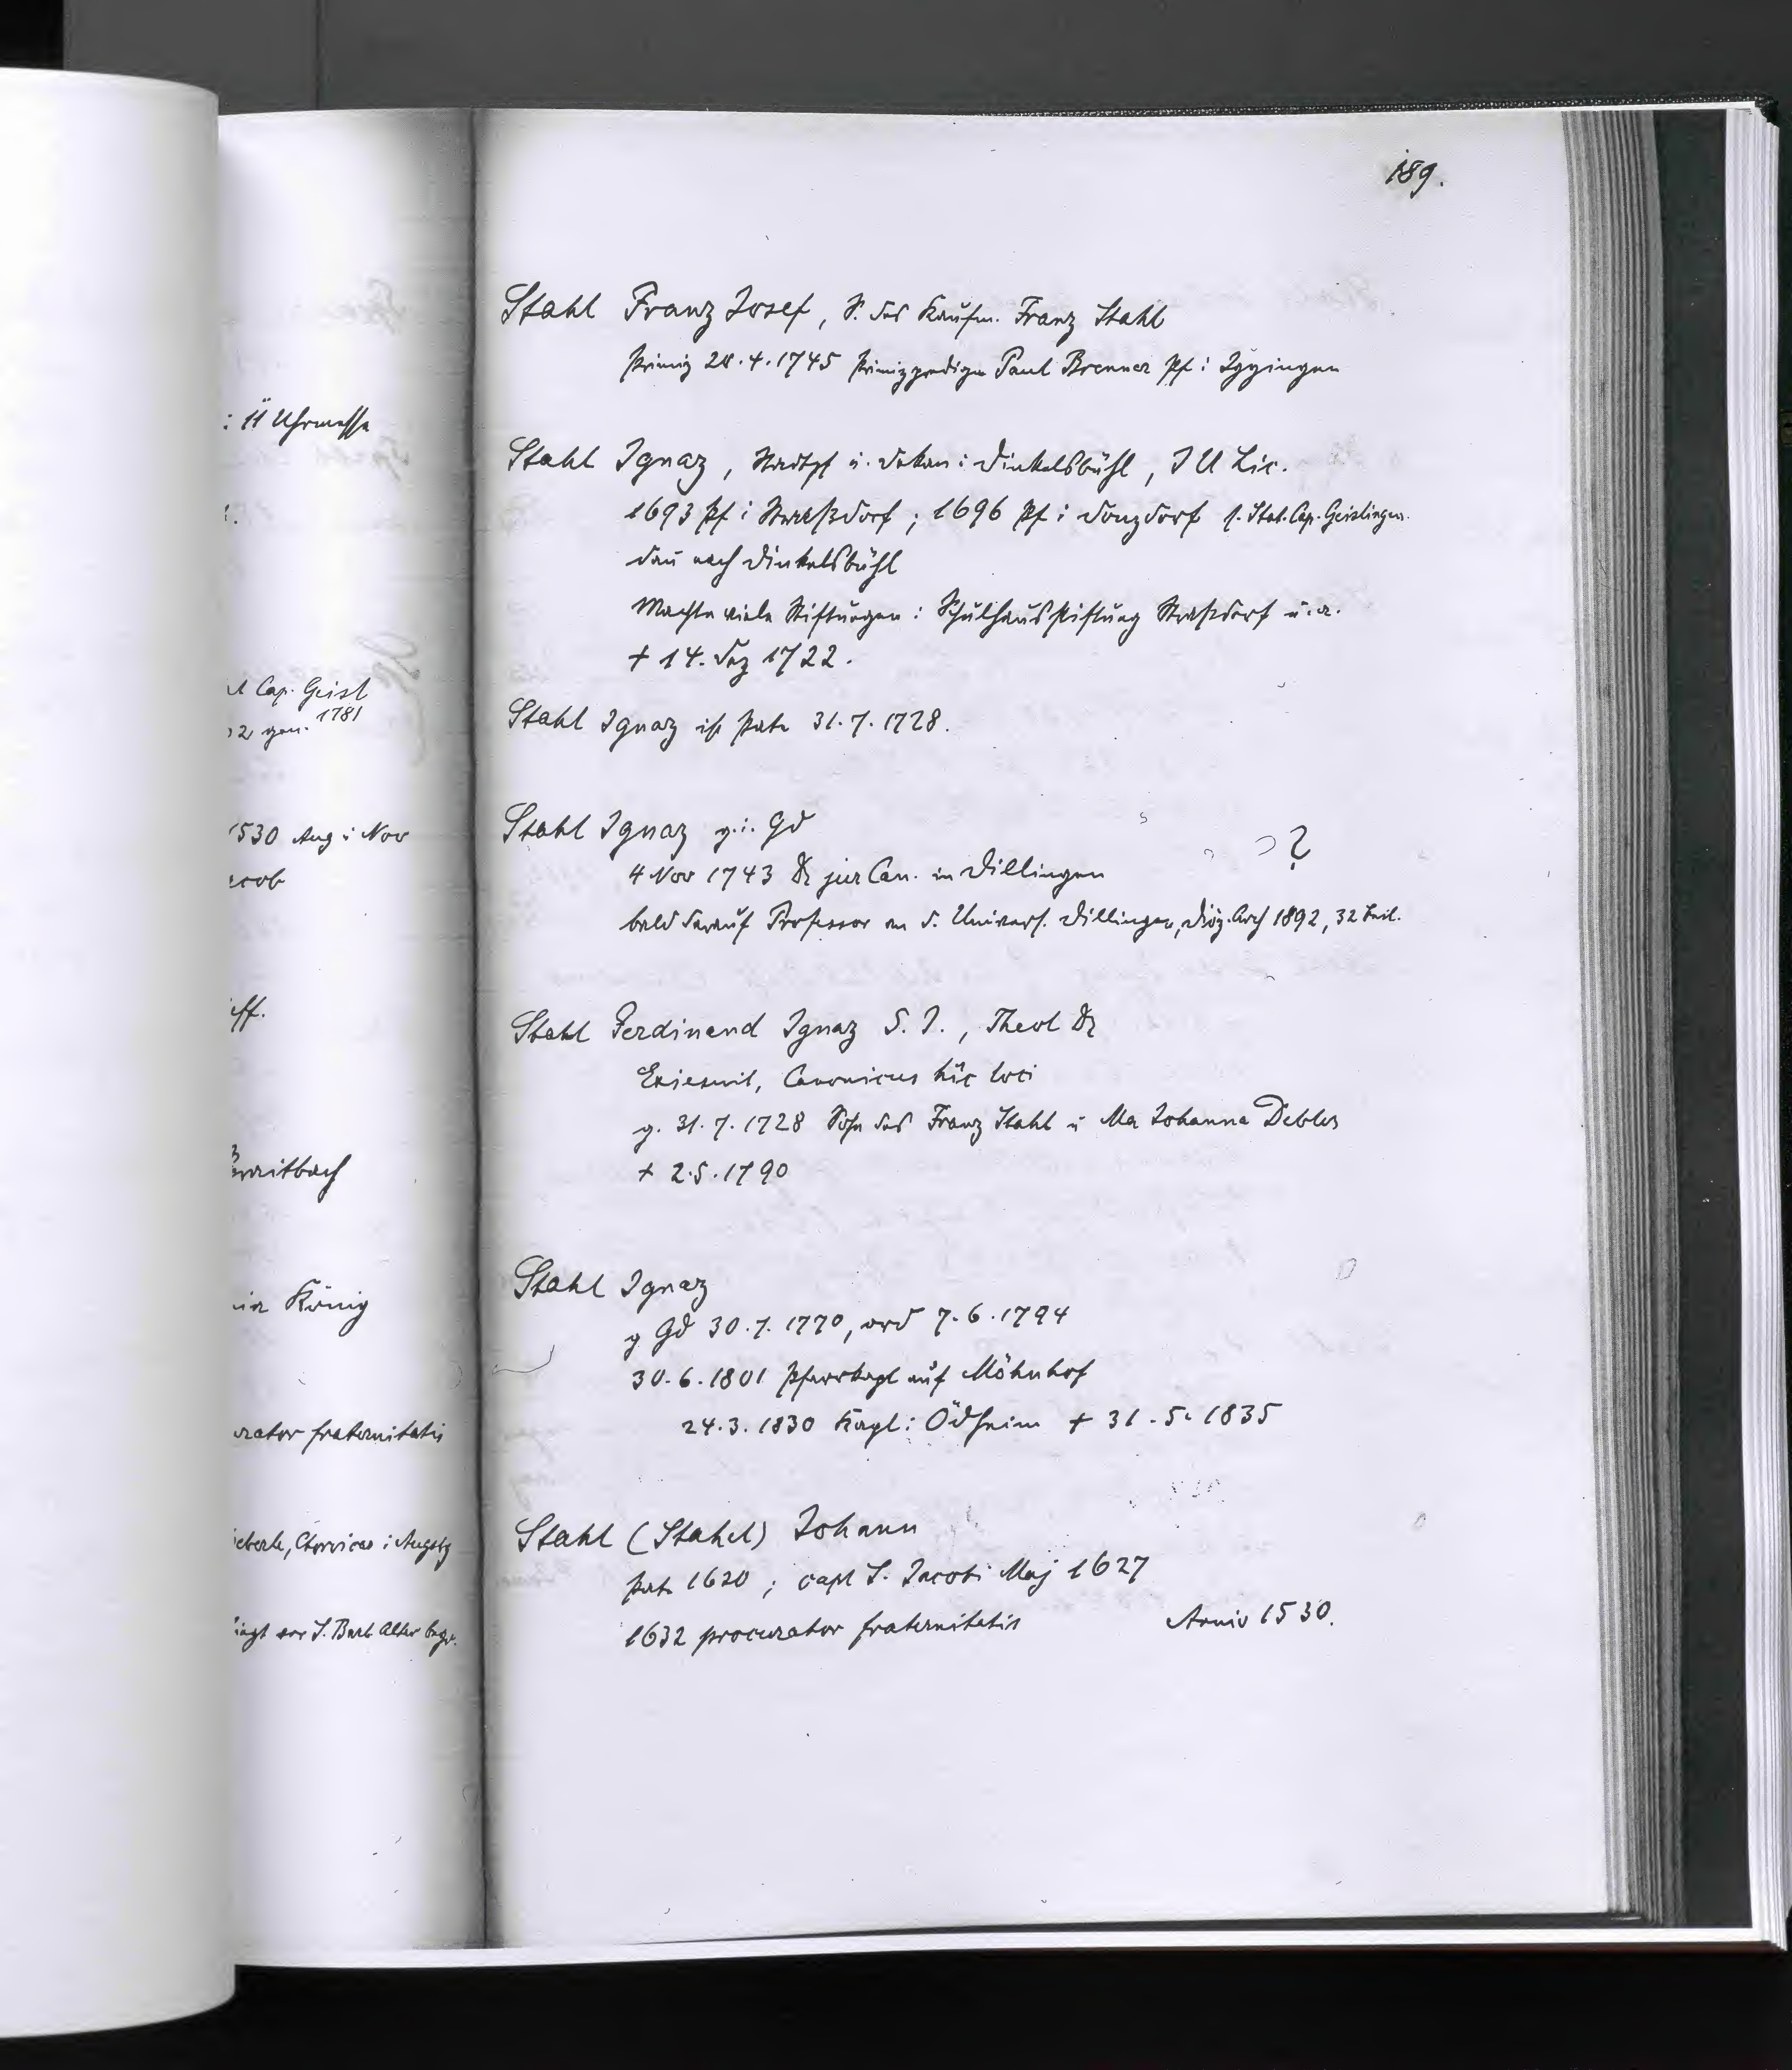 189.
: 11 Uhrmesse
Cap. Geisl
gen. 1781
1530 Aug i Nov
acob
eff.
Breitbach
König
urator fraternitatis
eberle, Chorvicar i Augsbg
liegt vor S. Barb. Altar begr.
Stahl Franz Josef, S. des Kaufm. Franz Stahl
Primiz 28.4.1745 Primizprediger Paul Brenner Pf i Iggingen
Stahl Ignaz, Stadtpf u. Dekan i Dinkelsbühl, J U Lic.
1693 Pf i Straßdorf; 1696 Pf i Donzdorf s. Stat. Cap. Geislingen.
dan̄ nach Dinkelsbühl
Machte viele Stiftungen: Schulhausstiftung Straßdorf u. a.
+ 14. Dez 1722.
Stahl Ignaz ist Pate 31.7.1728.
Stahl Ignaz g. i. Gd
4 Nov 1743 Dr jur Can. in Dillingen ?
bald darauf Professor an d. Univers. Dillingen, Diöz. Arch 1892, 32 Beil.
Stahl Ferdinand Ignaz S. J., Theol Dr
Exiesuit, Canonicus hic loci
g. 31.7.1728 Sohn des Franz Stahl u Ma Johanna Debler
+ 2.5.1790
Stahl Ignaz
g Gd 30.7.1770, ord 7.6.1794
30.6.1801 Pfarrkapl auf Möhnhof
24.3.1830 Kapl i Ödheim + 31.5.1835
Stahl (Stahel) Johann
Pate 1620; capl S. Jacobi Maj 1627
1632 procurator fraternitatis Anniv 1530.